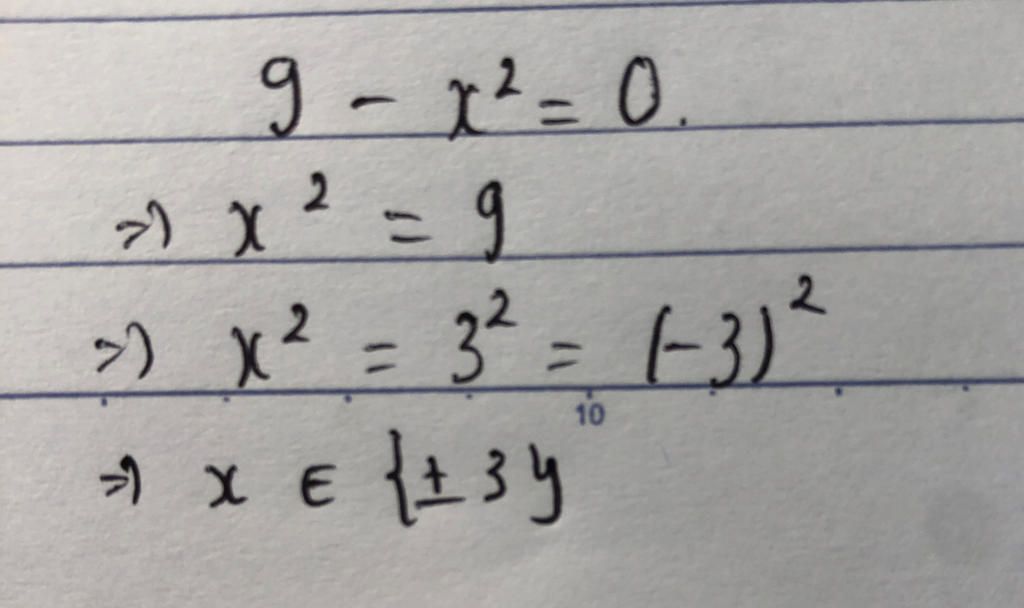 9 - x² = 0.
⇒ x² = 9
⇒ x² = 3² = (-3)²
10
⇒ x ∈ {± 3}